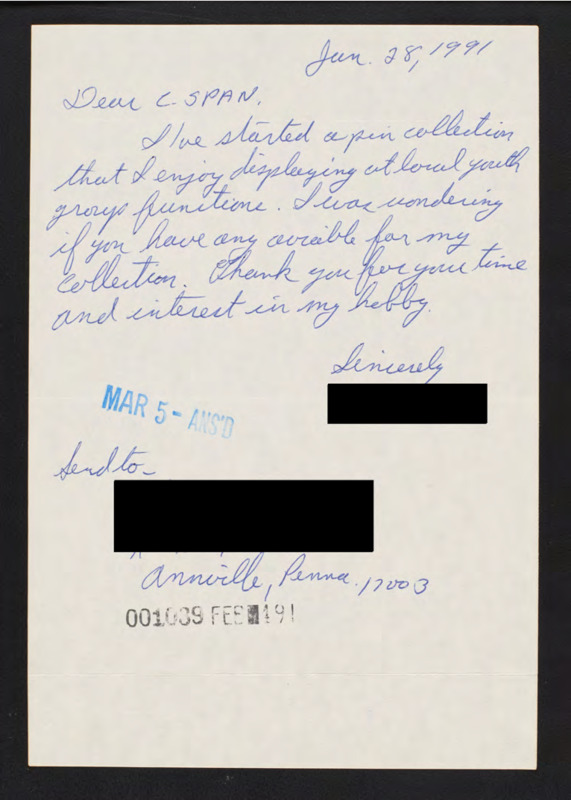 Jan. 28, 1991
Dear C-SPAN.
I've started a pin collection
that I enjoy displaying at local youth
group functions. I was wondering
if you have any avaible for my
collection. Thank you for your time
and interest in my hobby.
Sincerely
MAR 5 - ANS'D
Send to-
Annville, Penna. 17003
001039 FEB 491